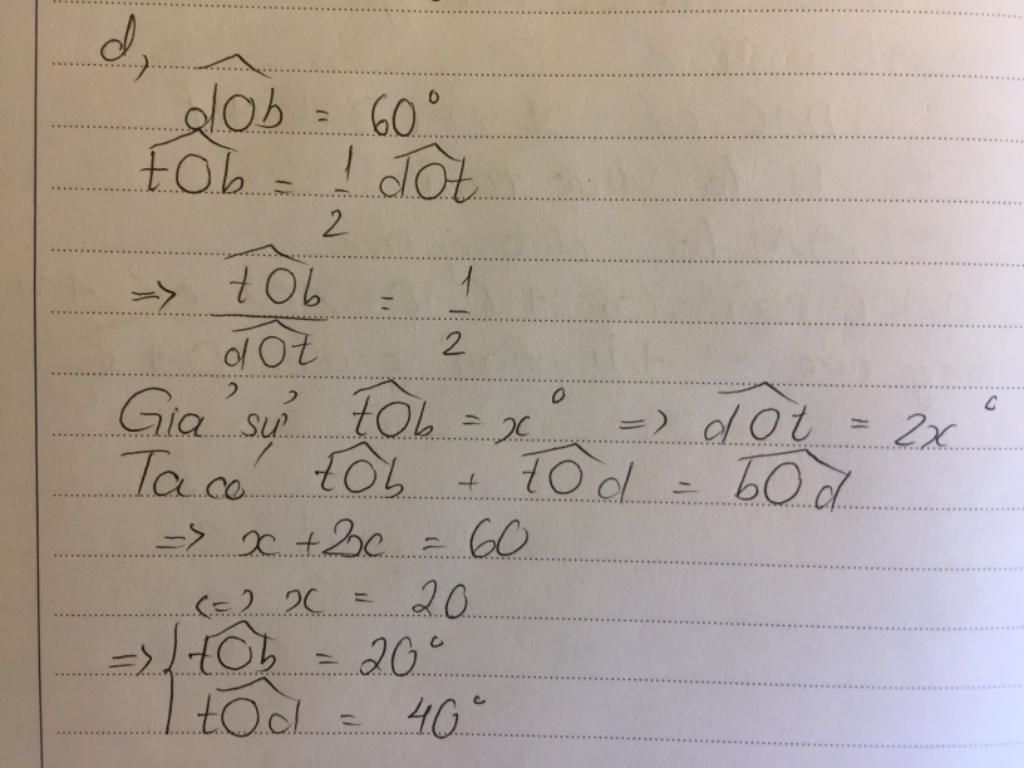 d,
dOb = 60°
tOb = 1/2 dOt
=> tOb/dOt = 1/2
Giả sử tOb = x° => dOt = 2x°
Ta có tOb + tOd = bOd
=> x + 2x = 60
<=> x = 20
=> { tOb = 20°
tOd = 40°